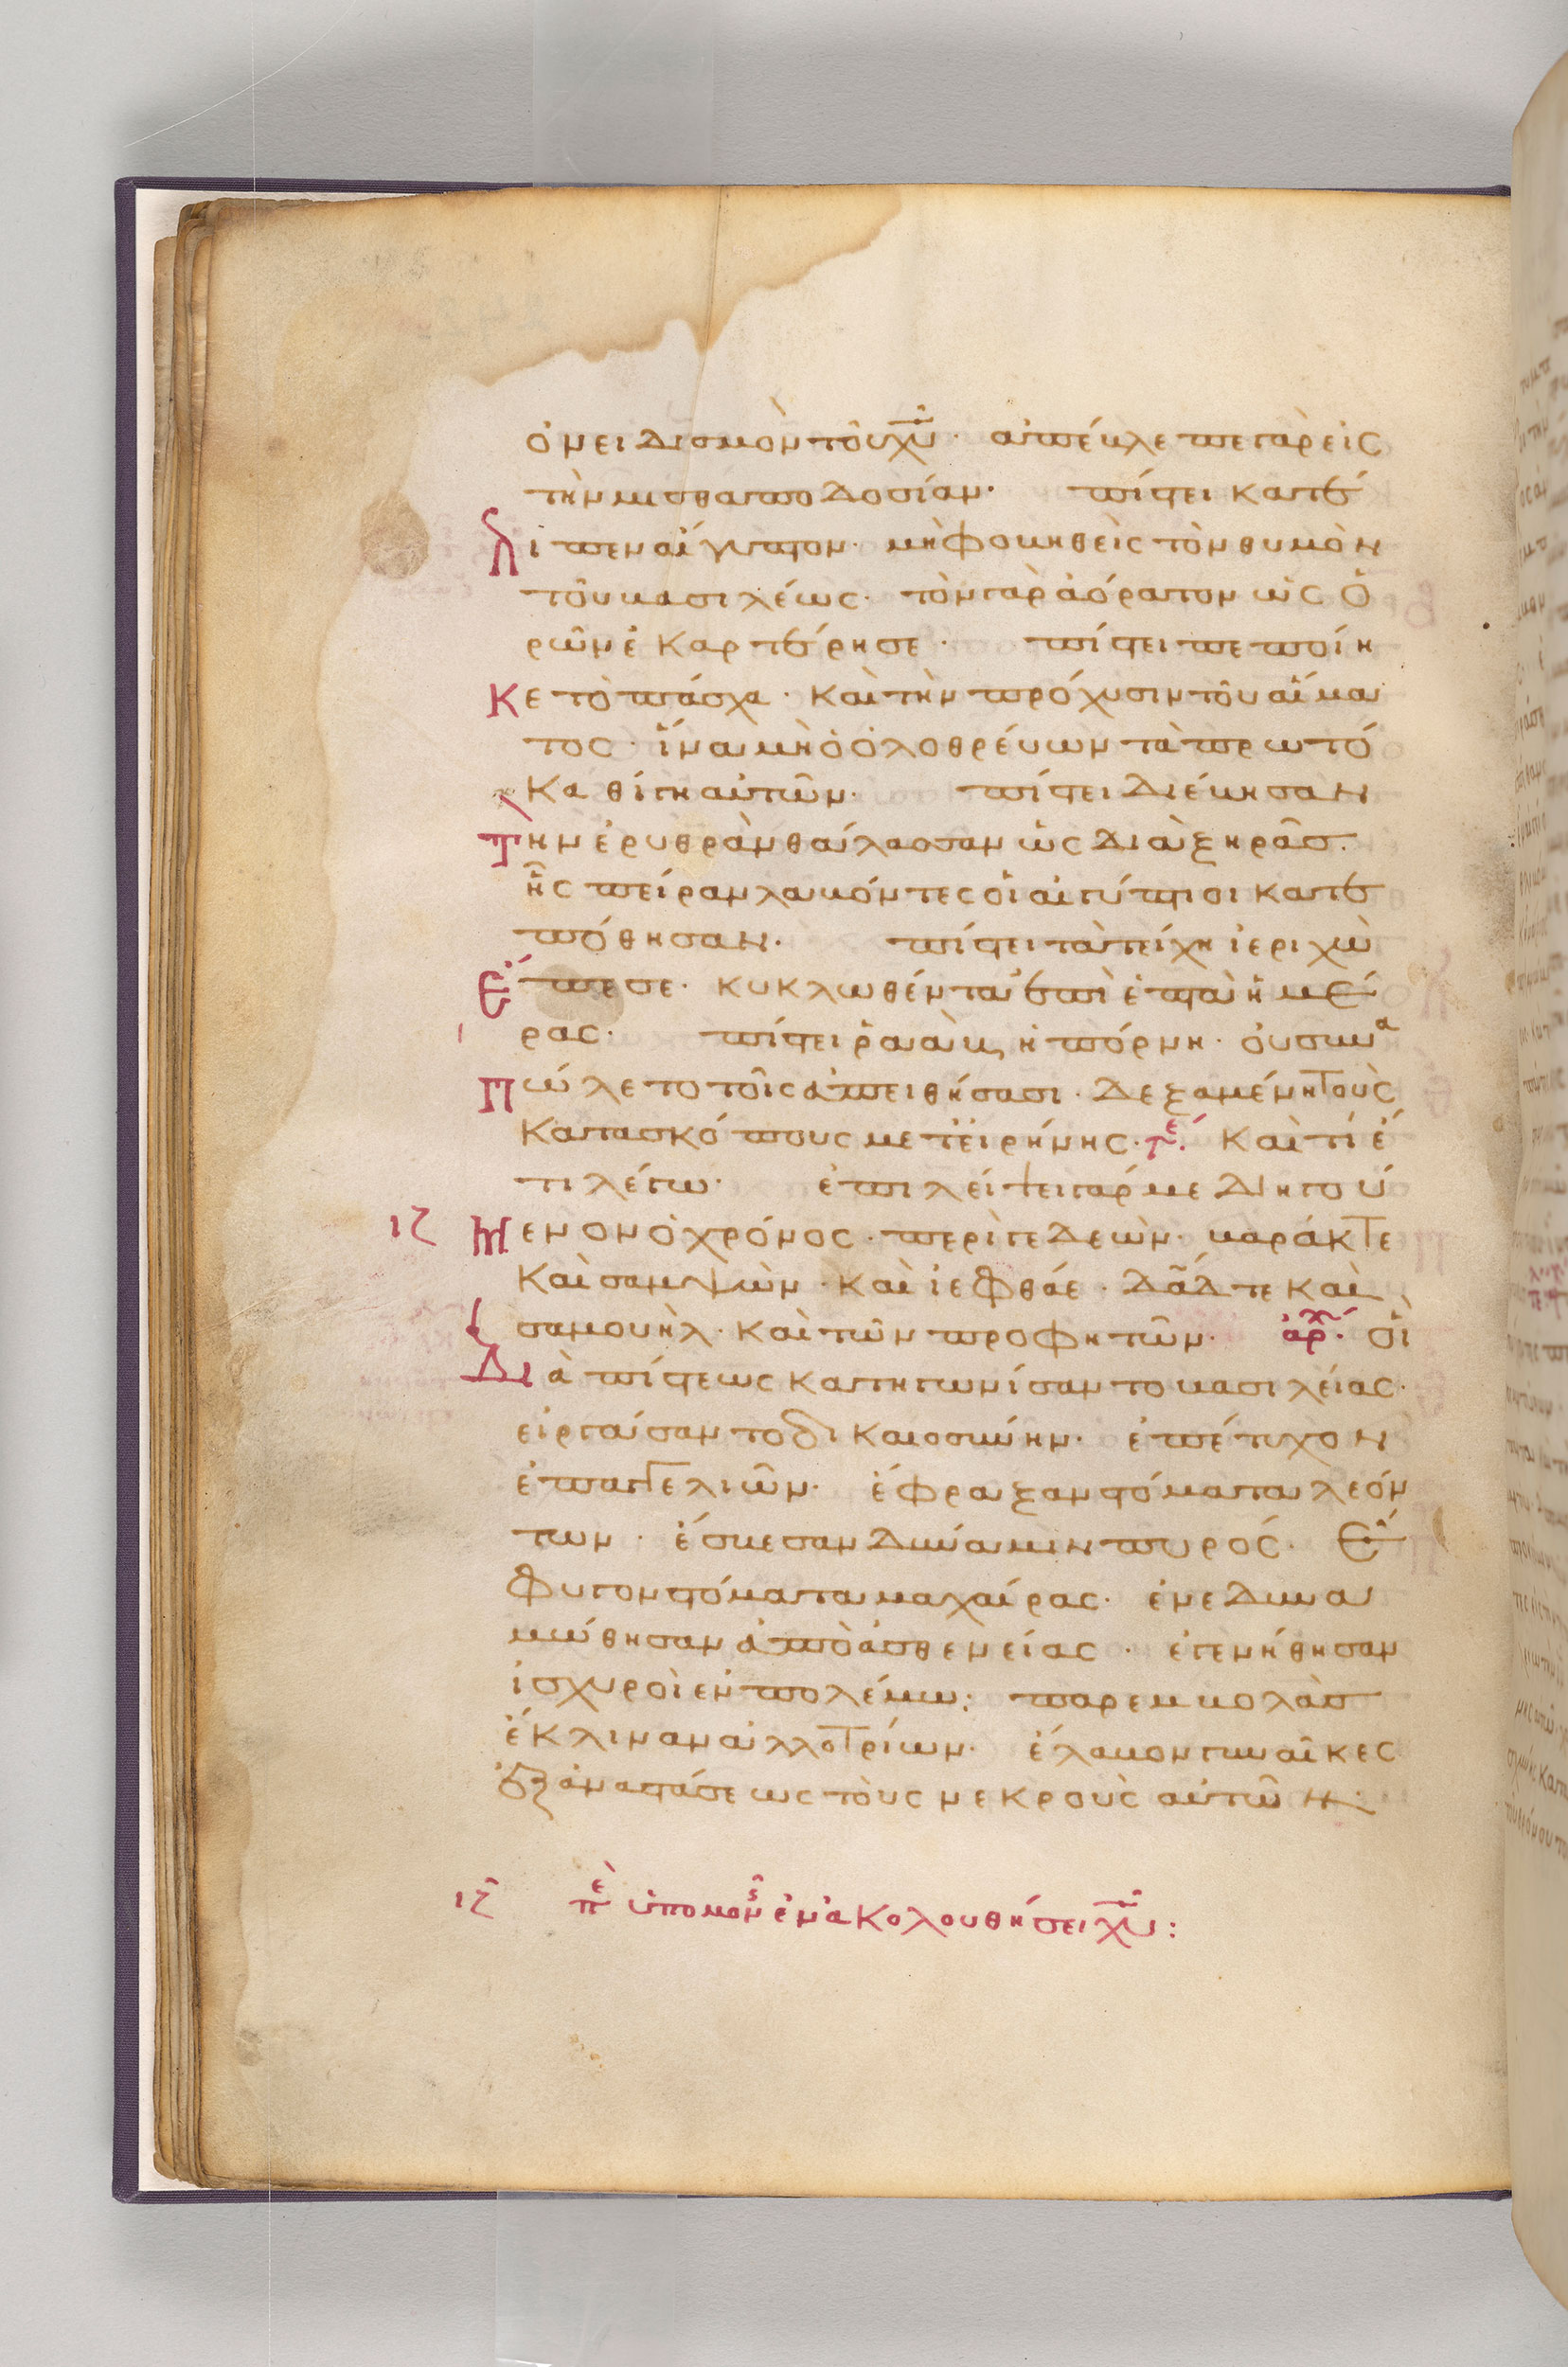 ὀνειδισμὸν τοῦ χ̅υ̅· ἀπέβλεπε γὰρ εἰς
τὴν μισθαποδοσίαν· πίστει κατέ
λιπεν αἴγυπτον· μὴ φοβηθεὶς τὸν θυμὸν
τοῦ βασιλέως· τὸν γὰρ ἀόρατον ὡς ὁ
ρῶν ἐκαρτέρησε· πίστει πεποίη
κε τὸ πάσχα· καὶ τὴν πρόχυσιν τοῦ αἵμα
τος· ἵνα μὴ ὁ ὀλοθρέυων τὰ πρωτό
κα θίγη αὐτῶν· πίστει διέβησαν
τὴν ἐρυθρὰν θάλασσαν ὡς διὰ ξηρᾶσ·
ἧς πεῖραν λαβόντες οἱ αἰγύπτιοι κατε
πόθησαν· πίστει τὰ τείχη ἱεριχὼ
ἔπεσε· κυκλωθέντα ἐπὶ ἑπτὰ ἡμέ
ρας· πίστει ῥαὰβ ἡ πόρνη· ὀυ συνα
πώλετο τοῖς ἀπειθήσασι· δεξαμένη τοὺς
κατασκόπους μετ εἰρήνης· τε· καὶ τί έ
τι λέγω· ἐπιλείψει γάρ με διηγού
ιζ μενον ὁ χρόνος· περὶ γεδεὼν· βαράκ τε
καὶ σαμψὼν· καὶ ἰεφθάε· δ̅α̅δ̅ τε καὶ
σαμουὴλ· καὶ τῶν προφητῶν· ἀρχ· οἳ
διὰ πίστεως κατηγωνίσαντο βασιλείας·
εἰργάσαντο δικαιοσύνην· ἐπέτυχον
ἐπαγγελιῶν· ἔφραξαν στόματα λεόν
των· ἔσβεσαν δύναμιν πυρός· ἔ
φυγον στόματα μαχαίρας· ἐνεδυνα
μώθησαν ἀπὸ ἀσθενείας· ἐγενήθησαν
ἰσχυροὶ ἐν πολέμω· παρεμβολὰσ
ἔκλιναν ἀλλοτρίων· ἔλαβον γυναῖκες
ἐξ ἀναστάσεως τοὺς νεκροὺς αὐτῶν·
ιζ πε ὑπομον ἐν ἀκολουθήσει χ̅υ̅: